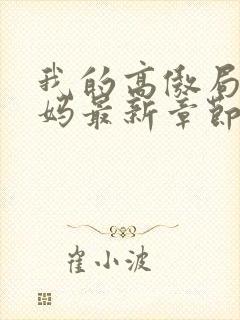 我的高傲局
妈最新章節
崔小波